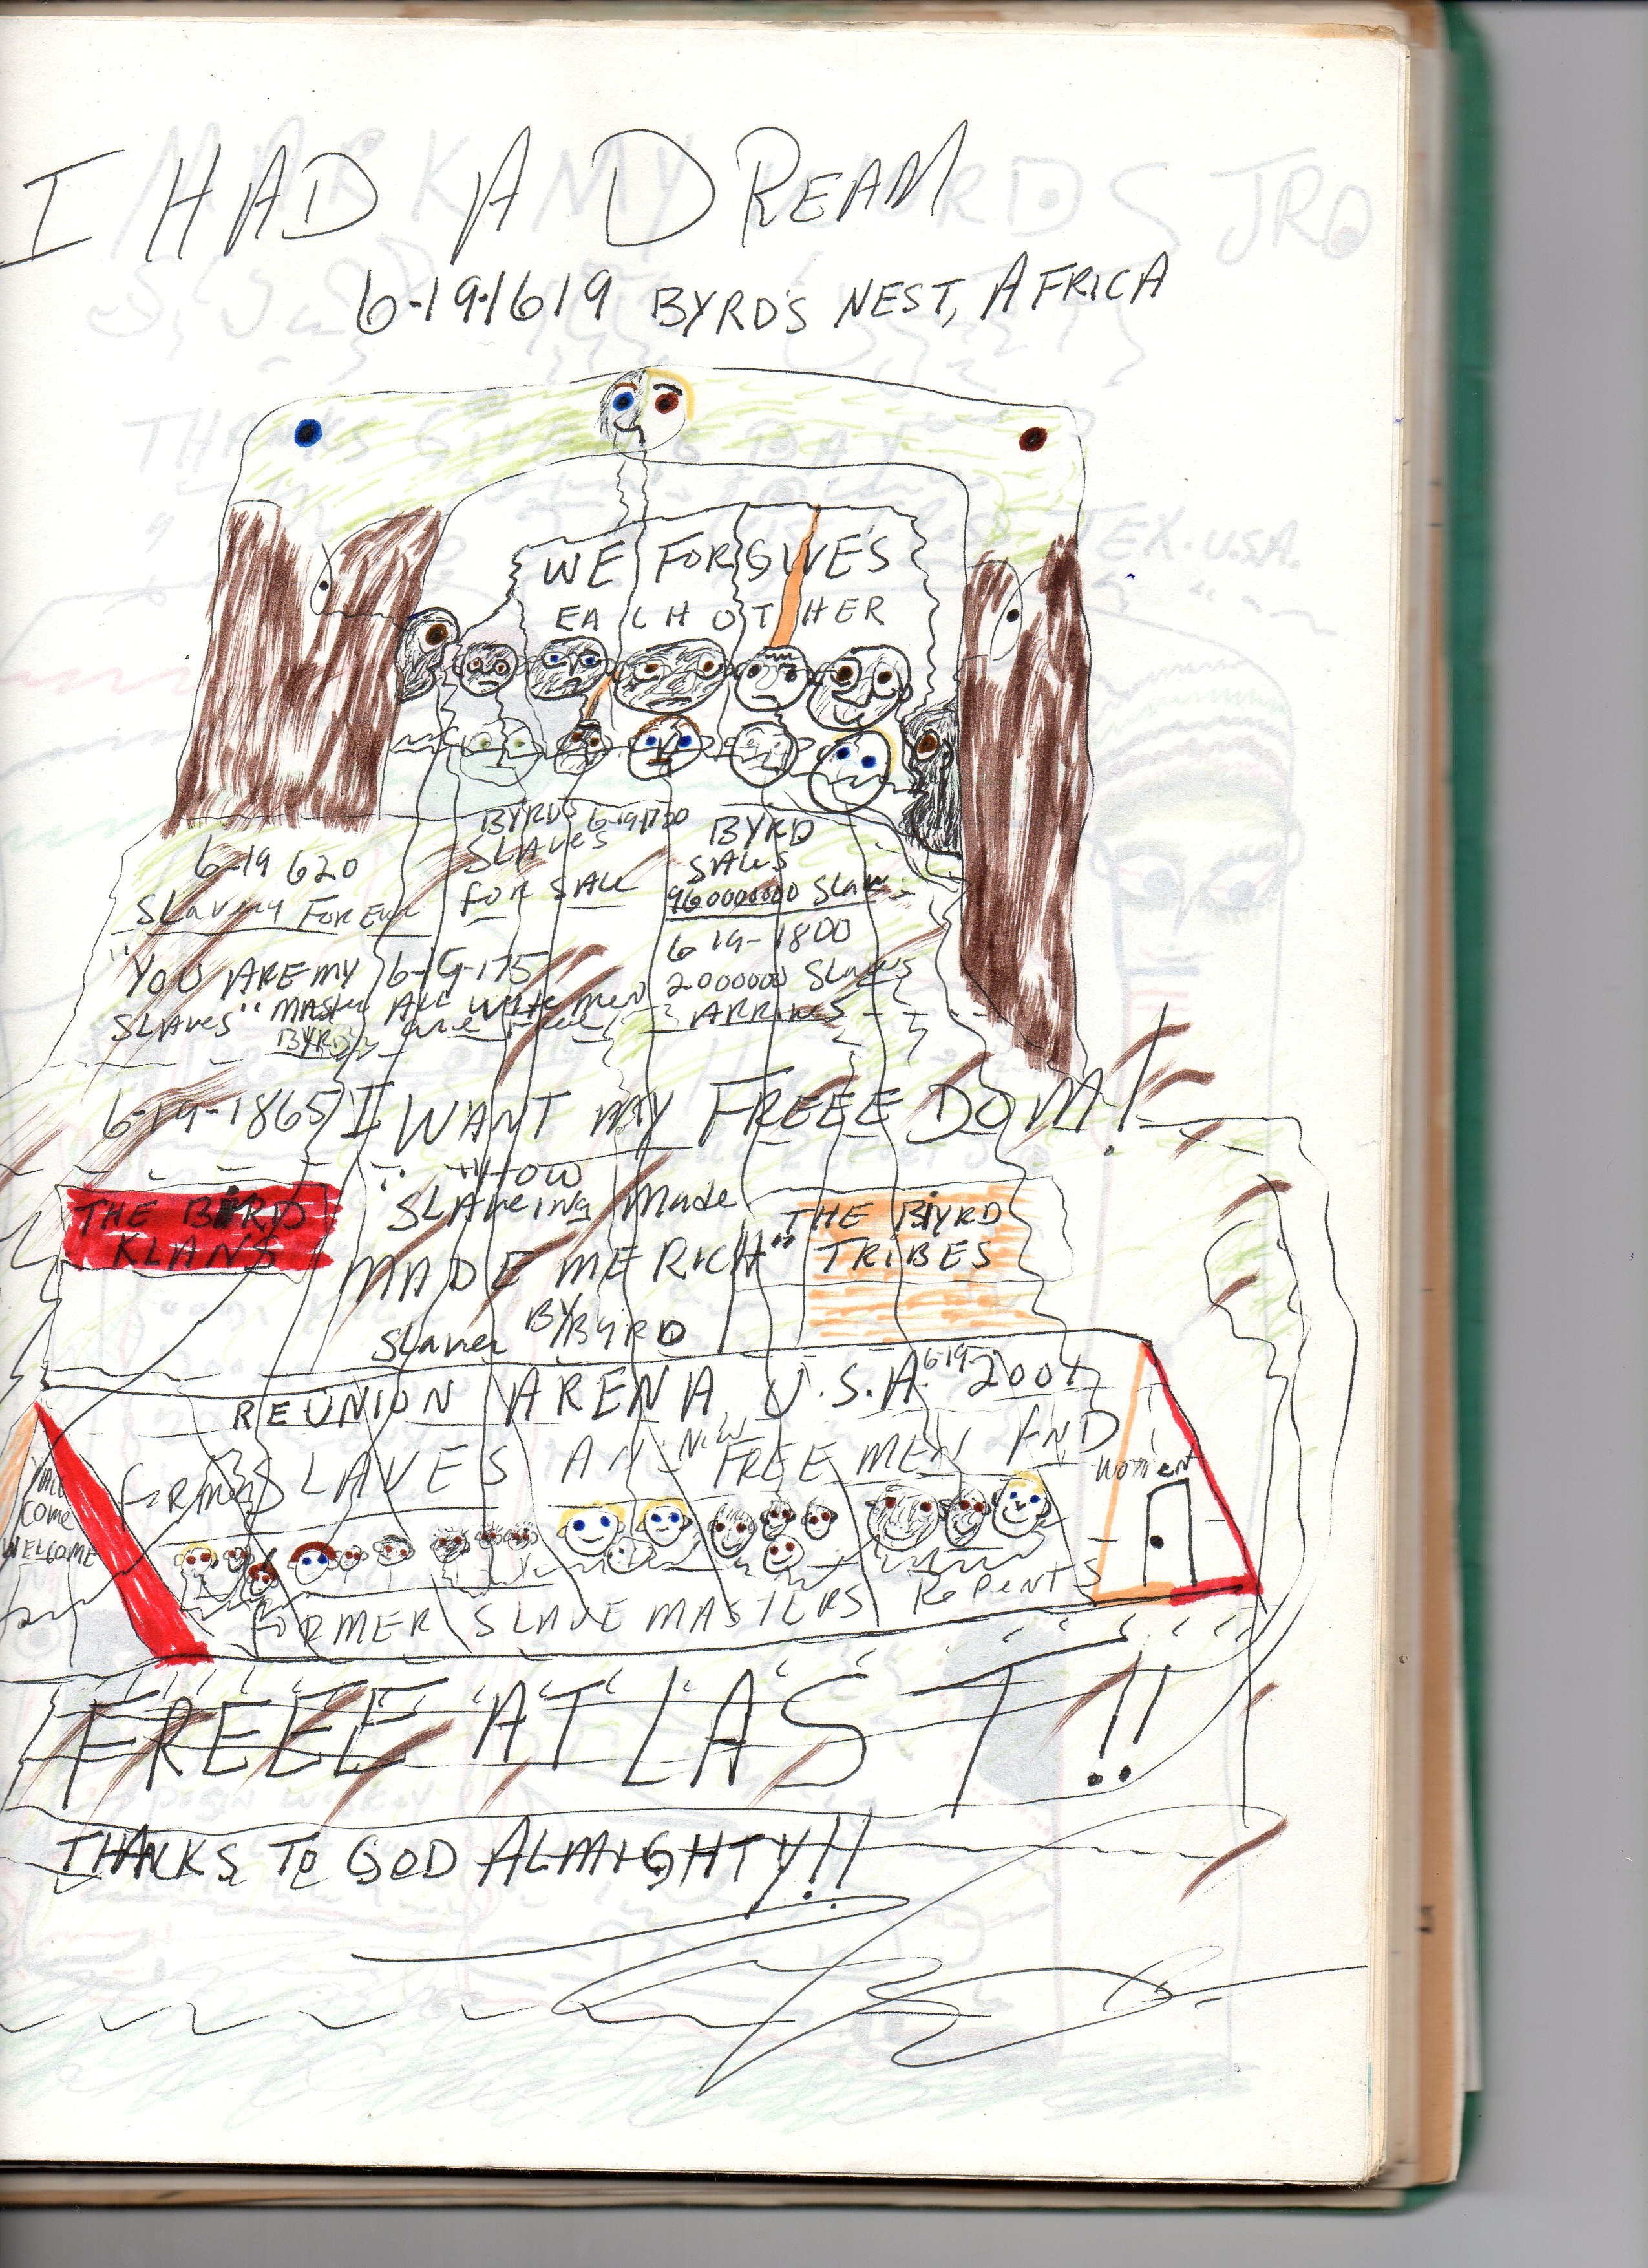 I HAD A DREAM
6-19-1619 BYRD'S NEST, AFRICA
WE FORGIVE'S
EACH OTHER
6-19 1620
Slavery Forever
BYRDS 6-19-1700
SLAVES
FOR SALE
BYRD
SALES
960000000 Slaves
"YOU ARE MY
SLAVES" Master
BYRD
6-19-175
All White men
are Free
6 19-1800
2000000 Slaves
ARRIVES
6-19-1865 I WANT MY FREEE DOM!
THE BYRD
KLANS
"HOW
SLAVEING Made
MADE ME RICH"
Slaver BY BYRD
THE BYRD
TRIBES
REUNION ARENA U.S.A. 6-19-2001
FORMER SLAVES AN NEW FREE MEN AND
Women
YALL
COME
WELCOME
FORMER SLAVE MASTERS Repents
FREEE AT LAST!!
THANKS TO GOD ALMIGHTY!!